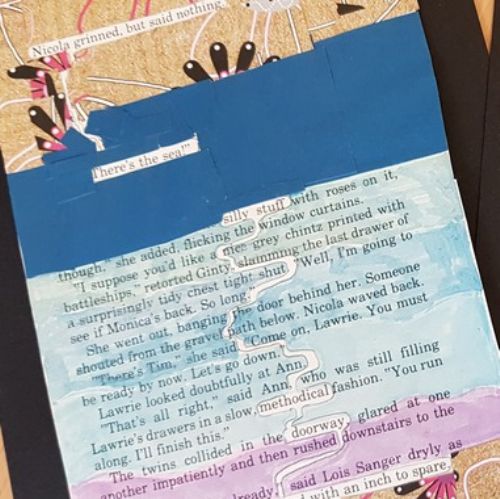 Nicola grinned, but said nothing.
There's the sea!"
silly stuff with roses on it,
though," she added, flicking the window curtains.
"I suppose you'd like a nice grey chintz printed with
battleships," retorted Ginty, slamming the last drawer of
a surprisingly tidy chest tight shut. "Well, I'm going to
see if Monica's back. So long."
She went out, banging the door behind her. Someone
shouted from the gravel path below. Nicola waved back.
"There's Tim," she said. "Come on, Lawrie. You must
be ready by now. Let's go down."
Lawrie looked doubtfully at Ann.
"That's all right," said Ann, who was still filling
Lawrie's drawers in a slow, methodical fashion. "You run
along. I'll finish this."
The twins collided in the doorway, glared at one
another impatiently and then rushed downstairs to the
already," said Lois Sanger dryly as
with an inch to spare.